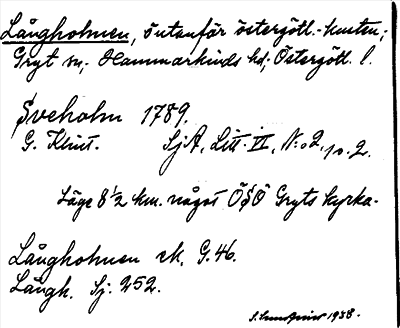 Långholmen, öutanför östergötl.-kusten;
Gryt sn; Hammarkinds hd; Östergötl. l.
Sveholm 1789.
G. Klint. SjA, Litt. VI, N:o 2, p. 2.
Läge 8 1/2 km. något ÖSÖ Gryts kyrka.
Långholmen ek. G. 46.
Långh. Sj. 252.
1938.